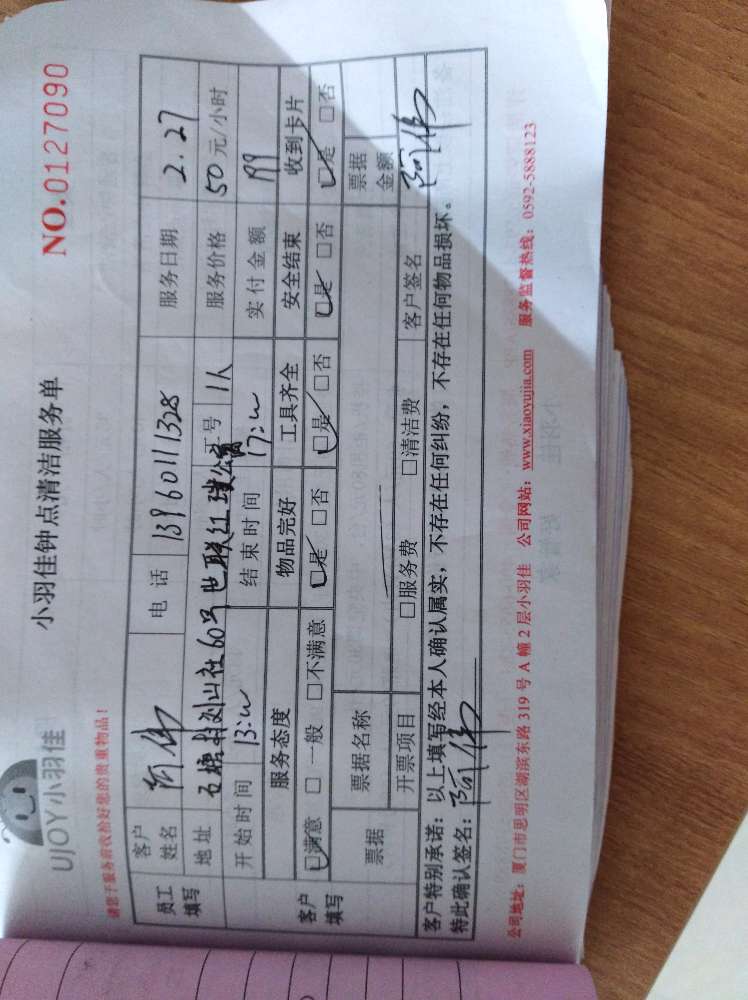 UJOY小羽佳
小羽佳钟点清洁服务单
NO.0127090
请您于服务前收拾好您的贵重物品！
员工填写
客户姓名 阿伟 电话 13960111328 服务日期 2.27
地址 石塘村刘山社60号 工号 1人 服务价格 50元/小时
开始时间 13:00 结束时间 17:00 实付金额 199
客户填写
服务态度 物品完好 工具齐全 安全结束 收到卡片
☑满意 □一般 □不满意 ☑是 □否 ☑是 □否 ☑是 □否 ☑是 □否
票据 票据名称 票据金额
开票项目 □服务费 □清洁费 客户签名 阿伟
客户特别承诺：以上填写经本人确认属实，不存在任何纠纷，不存在任何物品损坏。
特此确认签名：阿伟
公司地址：厦门市思明区湖滨东路 319 号 A 幢 2 层小羽佳 公司网站：www.xiaoyujia.com 服务监督热线：0592-5888123